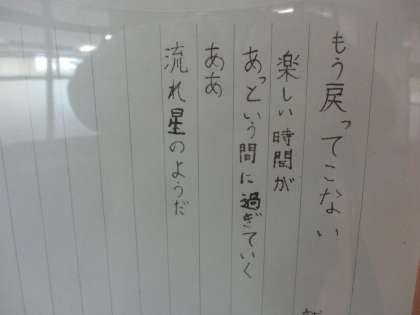 もう戻ってこない
楽しい時間が
あっという間に過ぎていく
ああ
流れ星のようだ